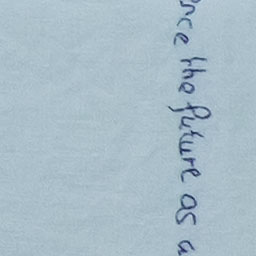 the future as a